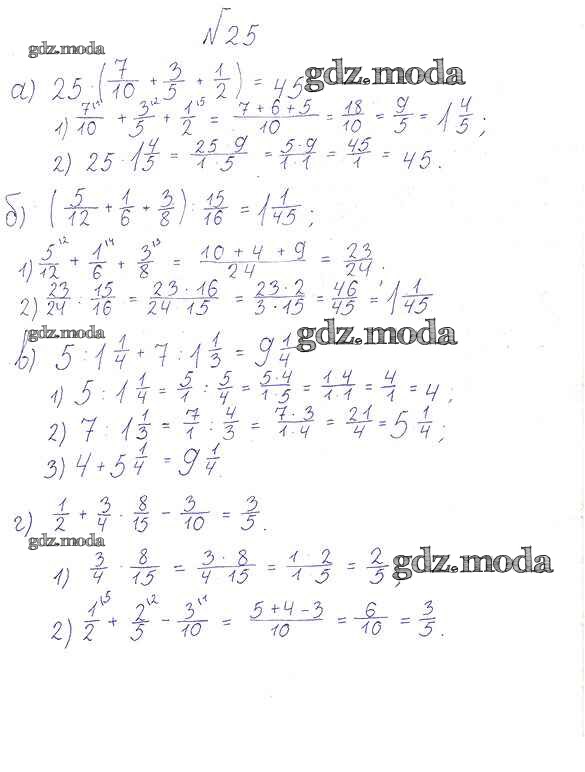 №25
gdz.moda
а) 25 · (7/10 + 3/5 + 1/2) = 45 gdz.moda
1) 7/10 + 3/5 + 1/2 = (7 + 6 + 5)/10 = 18/10 = 9/5 = 1 4/5;
2) 25 · 1 4/5 = (25 · 9)/(1 · 5) = (5 · 9)/(1 · 1) = 45/1 = 45.
б) (5/12 + 1/6 + 3/8) : 15/16 = 1 1/45;
1) 5/12 + 1/6 + 3/8 = (10 + 4 + 9)/24 = 23/24.
2) 23/24 : 15/16 = (23 · 16)/(24 · 15) = (23 · 2)/(3 · 15) = 46/45 = 1 1/45
gdz.moda gdz.moda
в) 5 : 1 1/4 + 7 : 1 1/3 = 9 1/4
1) 5 : 1 1/4 = 5/1 : 5/4 = (5 · 4)/(1 · 5) = (1 · 4)/(1 · 1) = 4/1 = 4;
2) 7 : 1 1/3 = 7/1 : 4/3 = (7 · 3)/(1 · 4) = 21/4 = 5 1/4;
3) 4 + 5 1/4 = 9 1/4.
г) 1/2 + 3/4 · 8/15 − 3/10 = 3/5.
gdz.moda
1) 3/4 · 8/15 = (3 · 8)/(4 · 15) = (1 · 2)/(1 · 5) = 2/5; gdz.moda
2) 1/2 + 2/5 − 3/10 = (5 + 4 − 3)/10 = 6/10 = 3/5.